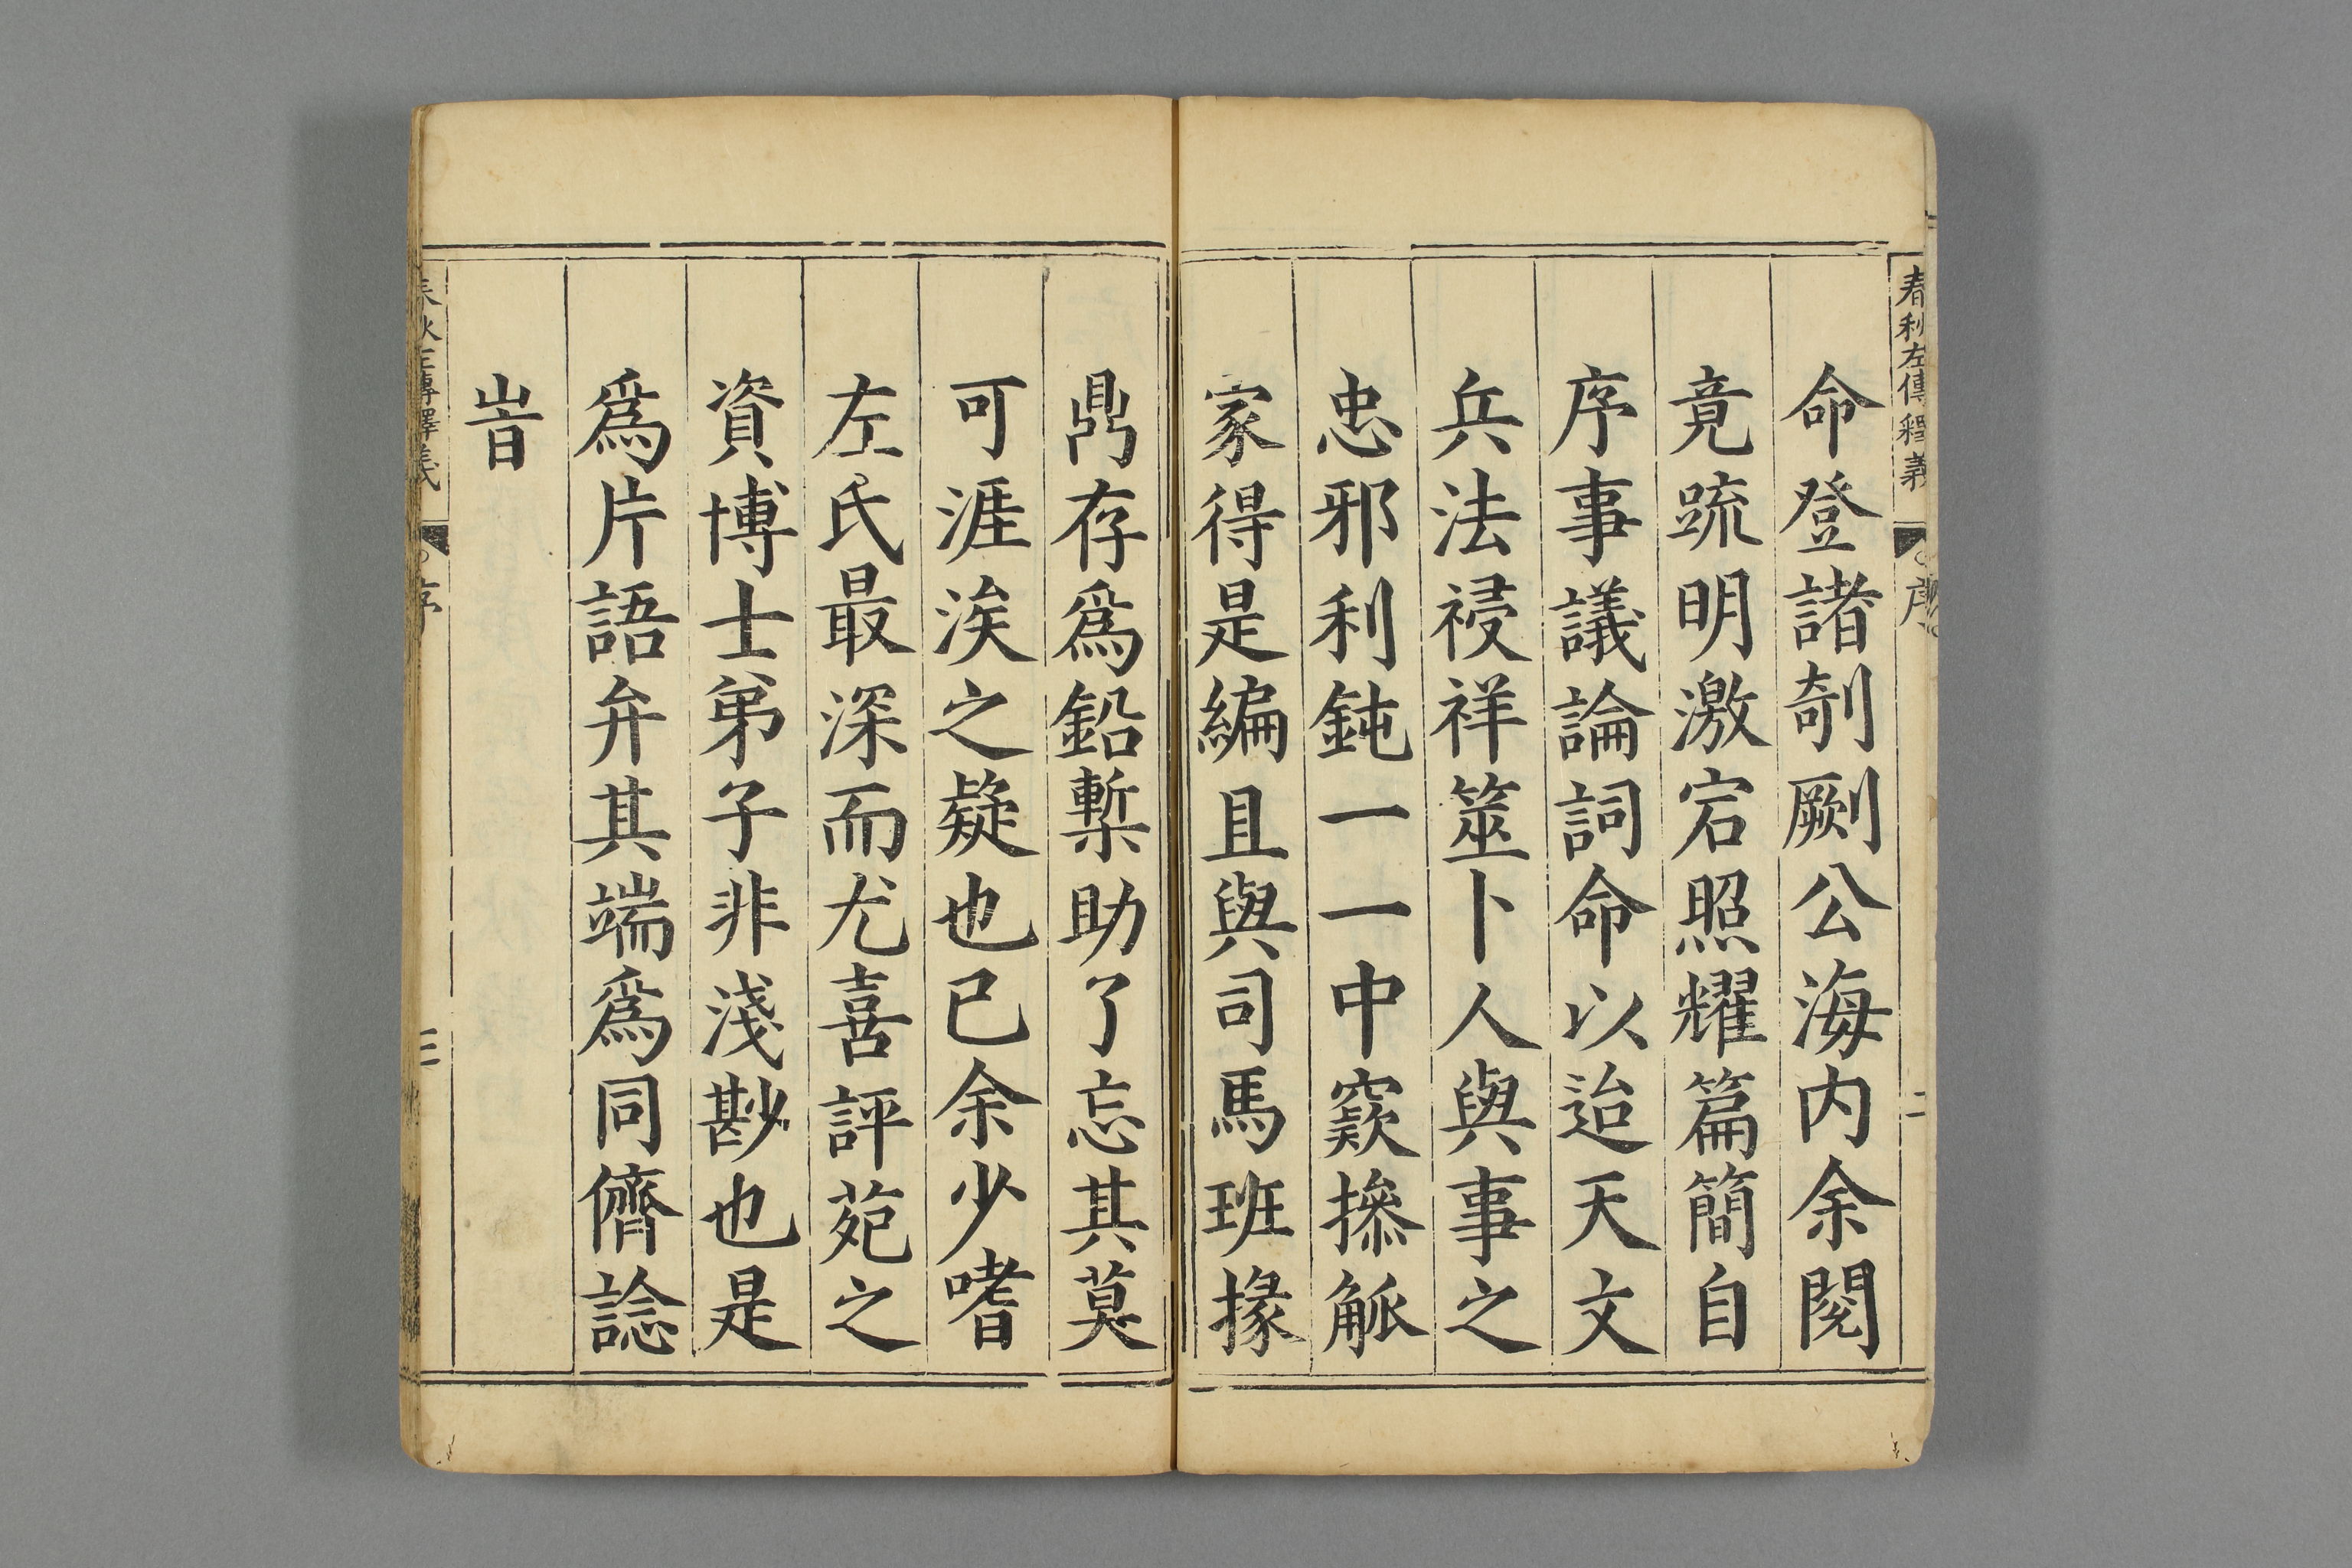 春秋左傳釋義
序
二
命登諸剞劂公海内余閱
竟疏明激宕照耀篇簡自
序事議論詞命以迨天文
兵法祲祥筮卜人與事之
忠邪利鈍一一中窾摻觚
家得是編且與司馬班掾
鼎存爲鉛槧助了忘其莫
可涯涘之疑也已余少嗜
左氏最深而尤喜評苑之
資博士弟子非淺尠也是
爲片語弁其端爲同儕諗
旹
春秋左傳釋義
序
三